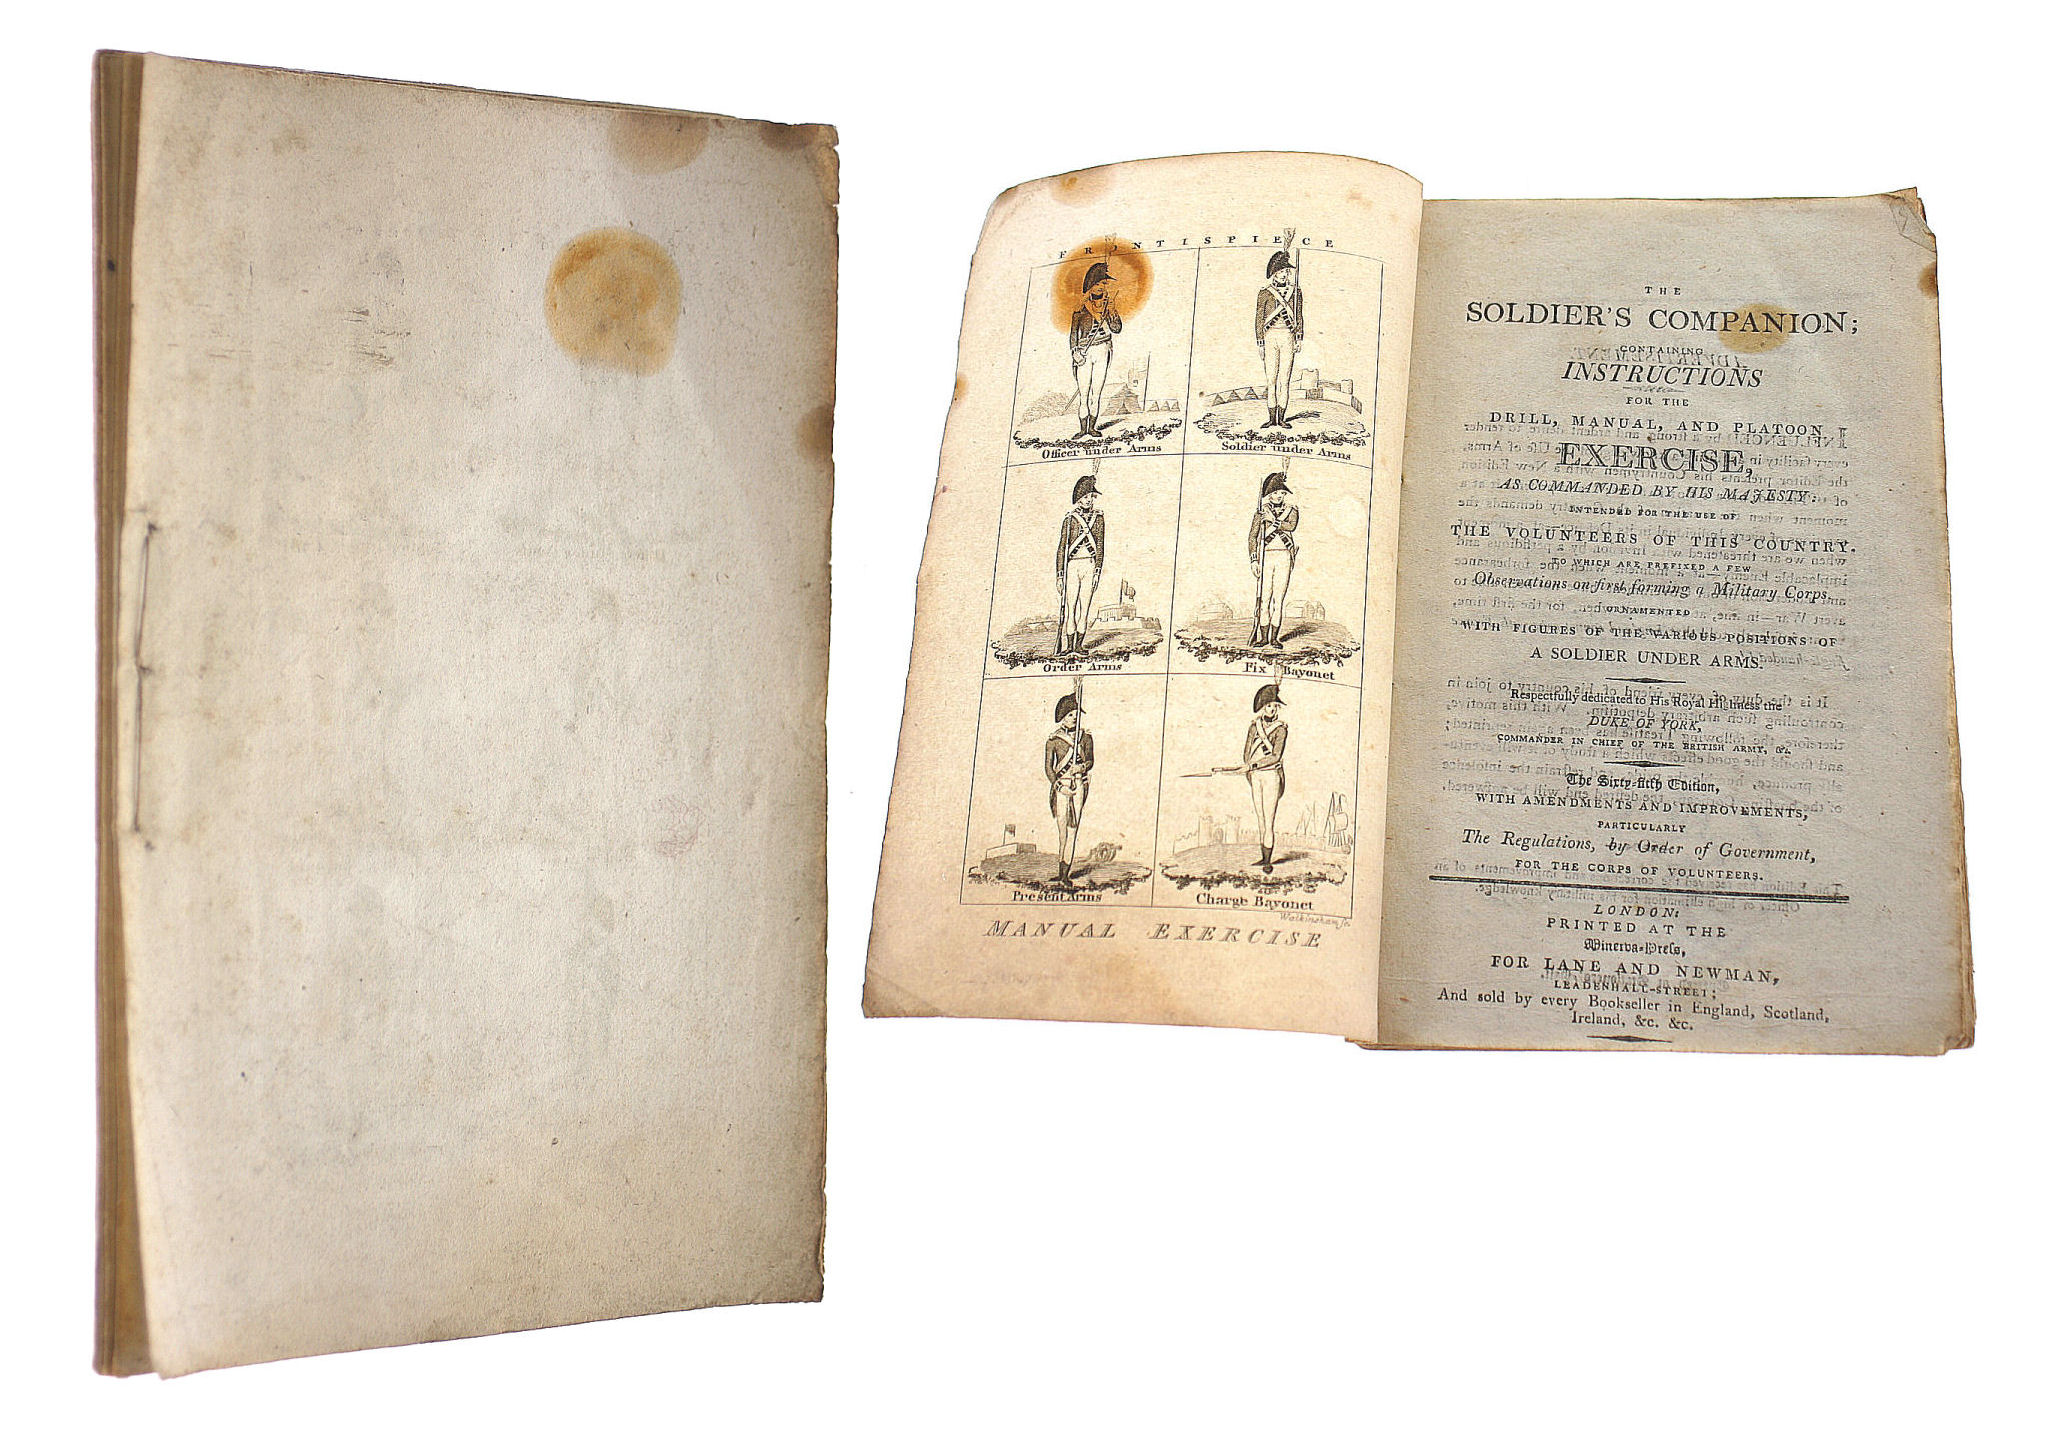 FRONTISPIECE
Officer under Arms
Soldier under Arms
Order Arms
Fix Bayonet
Present Arms
Charge Bayonet
Walkinsham Sc.
MANUAL EXERCISE
THE
SOLDIER'S COMPANION;
CONTAINING
INSTRUCTIONS
FOR THE
DRILL, MANUAL, AND PLATOON
EXERCISE,
AS COMMANDED BY HIS MAJESTY:
INTENDED FOR THE USE OF
THE VOLUNTEERS OF THIS COUNTRY.
TO WHICH ARE PREFIXED A FEW
Observations on first forming a Military Corps.
ORNAMENTED
WITH FIGURES OF THE VARIOUS POSITIONS OF
A SOLDIER UNDER ARMS.
Respectfully dedicated to His Royal Highness the
DUKE OF YORK,
COMMANDER IN CHIEF OF THE BRITISH ARMY, &c.
The Sixty-fifth Edition,
WITH AMENDMENTS AND IMPROVEMENTS,
PARTICULARLY
The Regulations, by Order of Government,
FOR THE CORPS OF VOLUNTEERS.
LONDON:
PRINTED AT THE
Minerva-Press,
FOR LANE AND NEWMAN,
LEADENHALL-STREET;
And sold by every Bookseller in England, Scotland,
Ireland, &c. &c.